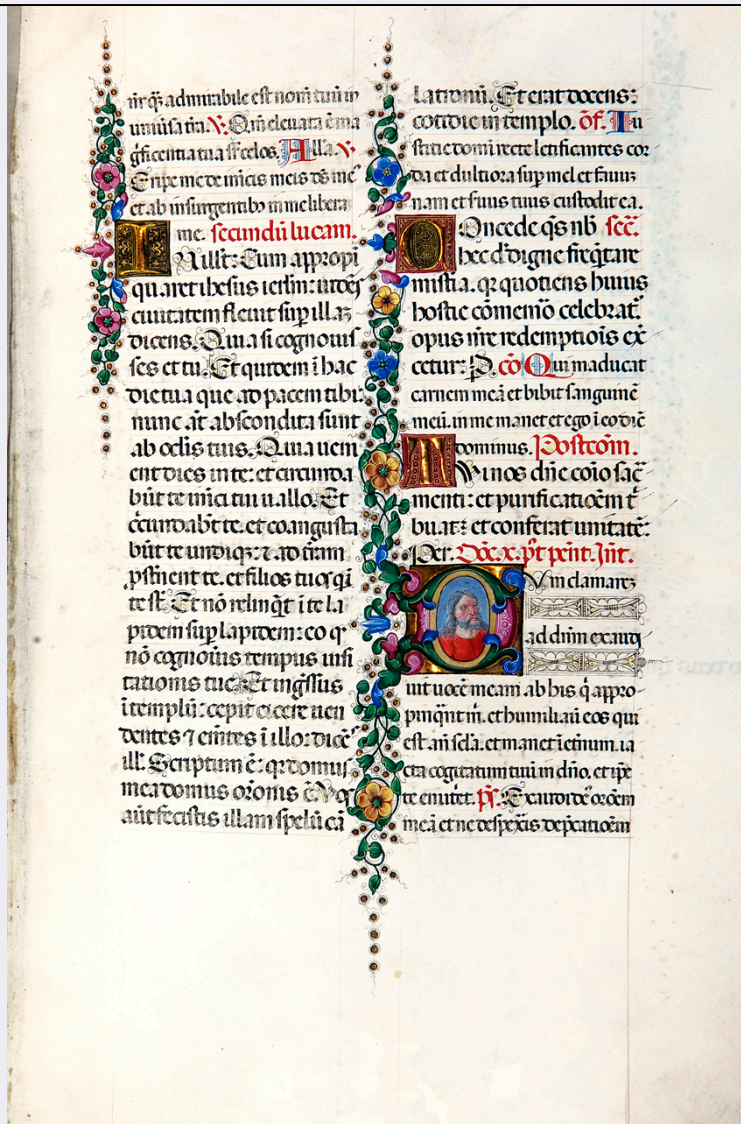 nr̄ q̄ȝ admirabile est nom̄ tuū in
uniūsa t̄ra. V. Qm̄ eleuata ē ma
gīficentia tua sr̄ celos. Alla. V.
Eripe me de inīcis meis dē me
et ab insurgentibɔ in me libera
me. secundū lucam.
In illt: Cum appropi
quaret ihesus ierlm: uides
ciuitatem fleuit sup illaȝ
dicens. Quia si cognouis
ses et tu. Et quidem ī hac
die tua que ad pacem tibi:
nunc āt abscondita sunt
ab oclis tuis. Quia ueni
ent dies in te: et circunda
būt te inīci tui uallo. Et
c̄cundabt̄ te. et coangusta
būt te undiqȝ: ⁊ ad t̄ram
pst̄nent te. et filios tuos qi
te st̄. Et nō relinq̄t ī te la
pidem sup lapidem: eo qɔ
nō cognouis tempus uisi
tationis tue. Et ing̃ssus
ī templū: cepit eicere uen
dentes ⁊ em̄tes ī illo: dicēs
ill'. Scriptum ē: qɔ domus
mea domus orōnis ē. Vos
aūt fecistis illam spelūcā
latronū. Et erat docens:
cottidie in templo. ōf. Iu
stitie domī recte letificantes cor
da et dultiora sup mel et fauuȝ
nam et seruus tuus custodit ea.
Concede q̄s nb̄ sec̄.
hec d̄ digne freq̄tare
mist̄ia. qɔ quotiens huius
hostie cōmemō celebrat'
opus nr̄e redemptiōis ex̄
cetur: P. cō Qui māducat
carnem meā et bibit sanguinē
meū. in me manet et ego ī eo dic̄
dominus. Postcōm.
Tui nos dn̄e cōio sac̄
menti: et purificatiōem t̄
buat: et conferat unitatē:
Per. Dōc̄. x. p̄t pent. Int̄.
Dum clamareȝ
ad dnm̄ exaudi
uit uocē meam ab his q̄ appro
pinq̄nt m̄. et humiliauī eos qui
est añ scl̄a. et manet ī et̄num. ia
cta cogitatum tuū in dn̄o. et ip̄e
te enut̄et. ps̄. Exaudi dē orōem
meā et ne despexīs dep̄catiōem